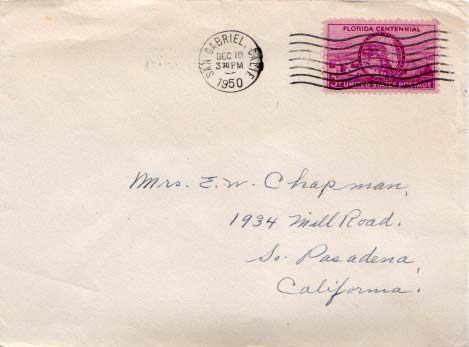 FLORIDA CENTENNIAL
SAN GABRIEL, CALIF.
DEC 18
3 30 PM
1950
3¢ UNITED STATES POSTAGE
Mrs. E. W. Chapman,
1934 Mill Road,
So. Pasadena,
California.